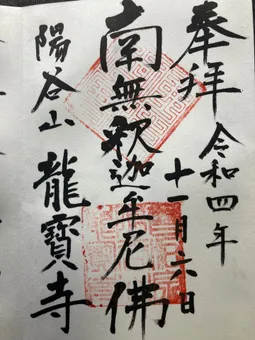 奉拜
令和四年
十一月六日
南無釈迦牟尼佛
陽谷山
龍寶寺